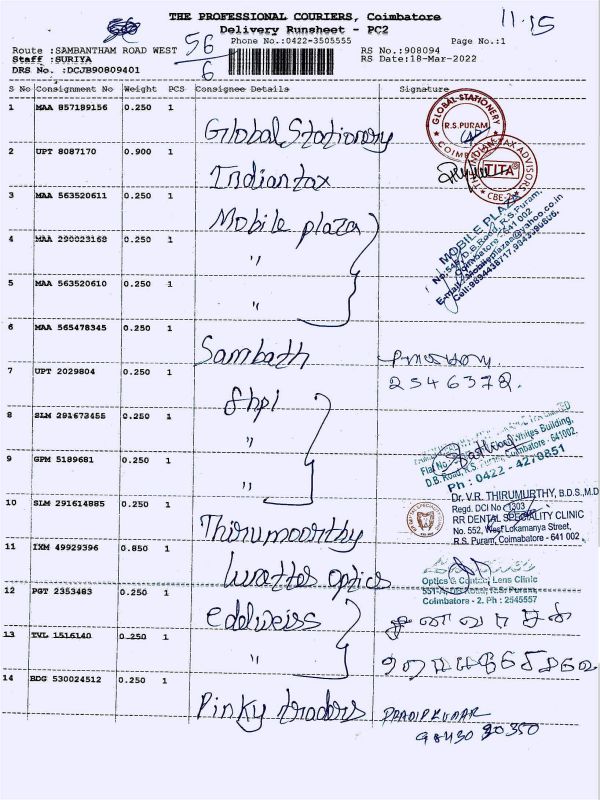 THE PROFESSIONAL COURIERS, Coimbatore
Delivery Runsheet - PC2
11.15
Phone No.:0422-3505555
Page No.:1
Route :SAMBANTHAM ROAD WEST
56
6
RS No.:908094
Staff :SURIYA
RS Date:18-Mar-2022
DRS No. :DCJB90809401
S No Consignment No Weight PCS Consignee Details Signature
1 MAA 857189156 0.250 1
Global Stationery
GLOBAL STATIONERY
R.S.PURAM
2 UPT 8087170 0.900 1
Indian tax
TAX ADVISORS
TITA
CBE-2
3 MAA 563520611 0.250 1
Mobile plaza
MOBILE PLAZA
D.B.Road, R.S.Puram,
Coimbatore - 641 002.
4 MAA 290023168 0.250 1
"
5 MAA 563520610 0.250 1
"
6 MAA 565478345 0.250 1
Sambath
7 UPT 2029804 0.250 1
2546372.
8 SLM 291673455 0.250 1
"
D.B. Road, R.S. Puram, Coimbatore - 641002.
Ph : 0422 - 4270851
9 GPM 5189681 0.250 1
"
Dr. V.R. THIRUMURTHY, B.D.S.,M.D
Regd. DCI No 1303
RR DENTAL SPECIALITY CLINIC
No. 552, West Lokamanya Street,
R.S. Puram, Coimabatore - 641 002.
10 SLM 291614885 0.250 1
Thirumoorthy
11 IXM 49929396 0.850 1
optics
Optics & Contact Lens Clinic
551-A, DB Road, R.S. Puram,
Coimbatore - 2. Ph : 2545557
12 PGT 2353483 0.250 1
edelweiss
13 TVL 1516140 0.250 1
"
14 BDG 530024512 0.250 1
Pinky traders
PRADIPKUMAR